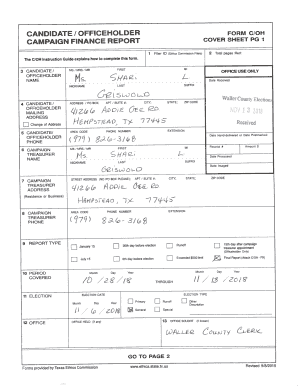 CANDIDATE / OFFICEHOLDER
CAMPAIGN FINANCE REPORT
FORM C/OH
COVER SHEET PG 1
The C/OH Instruction Guide explains how to complete this form.
1 Filer ID (Ethics Commission Filers)
2 Total pages filed:
3 CANDIDATE / OFFICEHOLDER NAME
MS / MRS / MR FIRST MI
Ms. Shari L
NICKNAME LAST SUFFIX
Griswold
OFFICE USE ONLY
Date Received
Waller County Elections
Received
4 CANDIDATE / OFFICEHOLDER MAILING ADDRESS
Change of Address
ADDRESS / PO BOX; APT / SUITE #; CITY; STATE; ZIP CODE
41266 Addie Gee Rd
Hempstead, TX 77445
5 CANDIDATE/ OFFICEHOLDER PHONE
AREA CODE PHONE NUMBER EXTENSION
(979) 826-3168
Date Hand-delivered or Date Postmarked
6 CAMPAIGN TREASURER NAME
MS / MRS / MR FIRST MI
Ms. Shari L
NICKNAME LAST SUFFIX
Griswold
Receipt # Amount $
Date Processed
Date Imaged
7 CAMPAIGN TREASURER ADDRESS
(Residence or Business)
STREET ADDRESS (NO PO BOX PLEASE); APT / SUITE #; CITY; STATE; ZIP CODE
41266 Addie Gee Rd
Hempstead, TX 77445
8 CAMPAIGN TREASURER PHONE
AREA CODE PHONE NUMBER EXTENSION
(979) 826-3168
9 REPORT TYPE
January 15
30th day before election
Runoff
15th day after campaign treasurer appointment (Officeholder Only)
July 15
8th day before election
Exceeded $500 limit
Final Report (Attach C/OH - FR)
10 PERIOD COVERED
Month Day Year
10 / 28 / 18
THROUGH
Month Day Year
11 / 13 / 2018
11 ELECTION
ELECTION DATE
Month Day Year
11 / 6 / 2018
ELECTION TYPE
Primary
Runoff
Other Description
General
Special
12 OFFICE
OFFICE HELD (if any)
13 OFFICE SOUGHT (if known)
Waller County Clerk
GO TO PAGE 2
Forms provided by Texas Ethics Commission
www.ethics.state.tx.us
Revised 9/8/2015